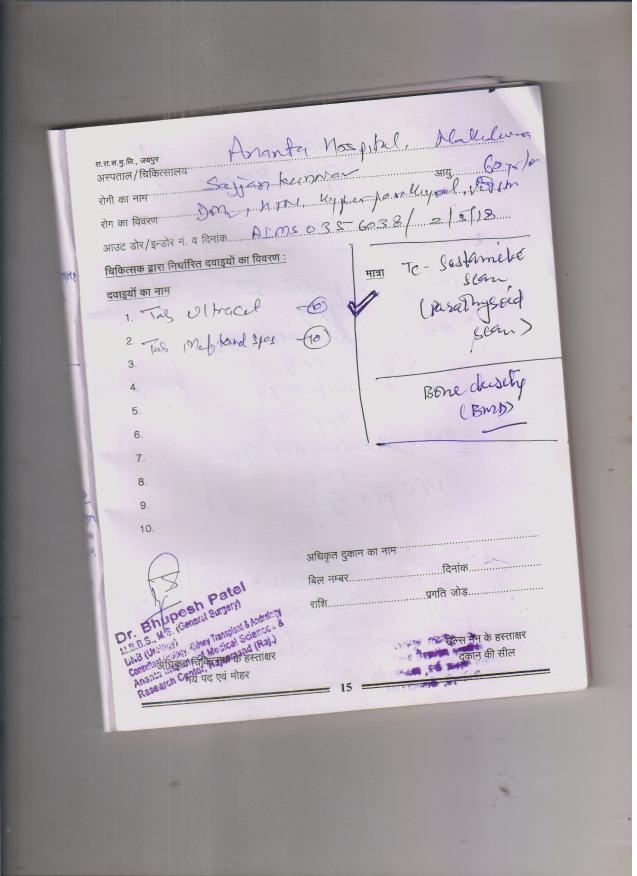 रा.रा.स.मु.लि., जयपुर
अस्पताल/चिकित्सालय Ananta Hospital,
रोगी का नाम Sajjan kunwar आयु 60 yr/
रोग का विवरण DM, HTN, Hyperparathyroid,
आउट डोर/इन्डोर नं. व दिनांक AIMS 035 6038/ 2/5/18
चिकित्सक द्वारा निर्धारित दवाइयों का विवरण :
दवाइयों का नाम
मात्रा
1. Tab Ultracet 10
2. Tab Meftal spas 10
3.
4.
5.
6.
7.
8.
9.
10.
TC - Sestamibi
scan
(Parathyroid
scan)
Bone density
(BMD)
अधिकृत दुकान का नाम
बिल नम्बर दिनांक
राशि प्रगति जोड़
Dr. Bhupesh Patel
M.B.B.S., M.S. (General Surgery)
DNB (Urology)
Consultant Urology, Kidney Transplant & Andrology
Ananta Institute of Medical Science &
Rasearch Center, Rajsamand (Raj.)
अधिकृत चिकित्सक के हस्ताक्षर
मय पद एवं मोहर
सेल्स मेन के हस्ताक्षर
दुकान की सील
15